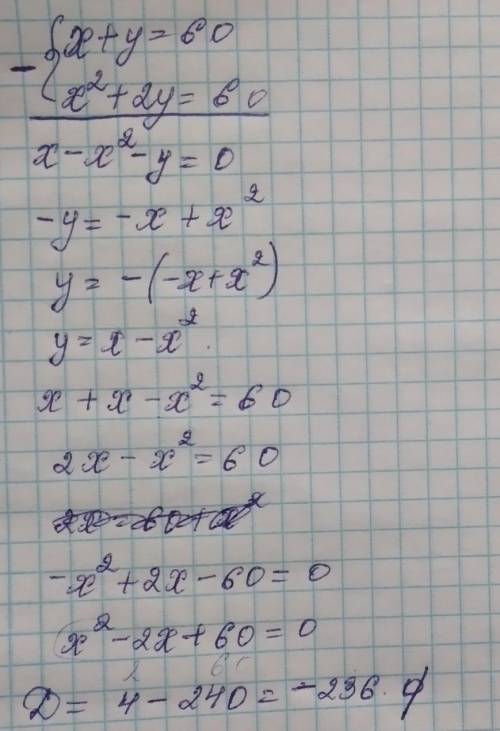 - { x + y = 60
x² + 2y = 60
x - x² - y = 0
-y = -x + x²
y = -(-x + x²)
y = x - x².
x + x - x² = 60
2x - x² = 60
2x = 60 + x²
-x² + 2x - 60 = 0
x² - 2x + 60 = 0
D = 4 - 240 = -236. ∅